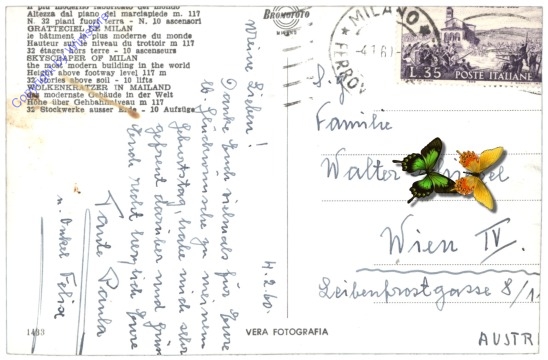 Il più moderno fabbricato del mondo
Altezza dal piano del marciapiede m. 117
N. 32 piani fuori terra - N. 10 ascensori
GRATTECIEL DE MILAN
le bâtiment le plus moderne du monde
Hauteur sur le niveau du trottoir m 117
32 étages hors terre - 10 ascenseurs
SKYSCRAPER OF MILAN
the most modern building in the world
Height above footway level 117 m
stories above soil - 10 lifts
WOLKENKRATZER IN MAILAND
das modernste Gebäude in der Welt
Höhe über Gehbahnniveau m 117
32 Stockwerke ausser Erde - 10 Aufzüge
BROMOFOTO
MILANO
FERROV
L. 35 POSTE ITALIANE
4.2.60.
Meine Lieben!
Danke Euch vielmals für Eure
lb. Glückwünsche zu meinem
Geburtstag, habe mich sehr
gefreut darüber und grüße
Euch recht herzlich Eure
Tante Paula
u. Onkel Felix
Familie
Walter
Wien IV.
Leibenfrostgasse 8/1
AUSTR
1433
VERA FOTOGRAFIA